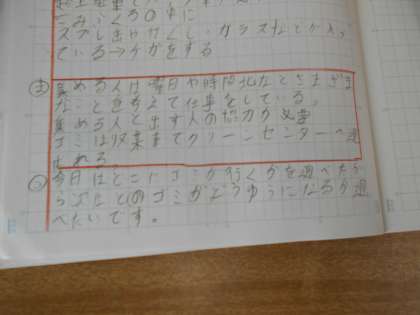 ごみぶくろの中に
スプレきやけくし、ガラスなどが入っ
ている→ケガをする
ま 集める人は曜日や時間などさまざま
なことを考えて仕事をしている。
集める人と出す人の協力が必要
ゴミは収集車でクリーンセンターへ運
ばれる。
今日はどこにゴミが行くかを調べたか
ら次はどのゴミがどうゆうになるか調
べたいです。